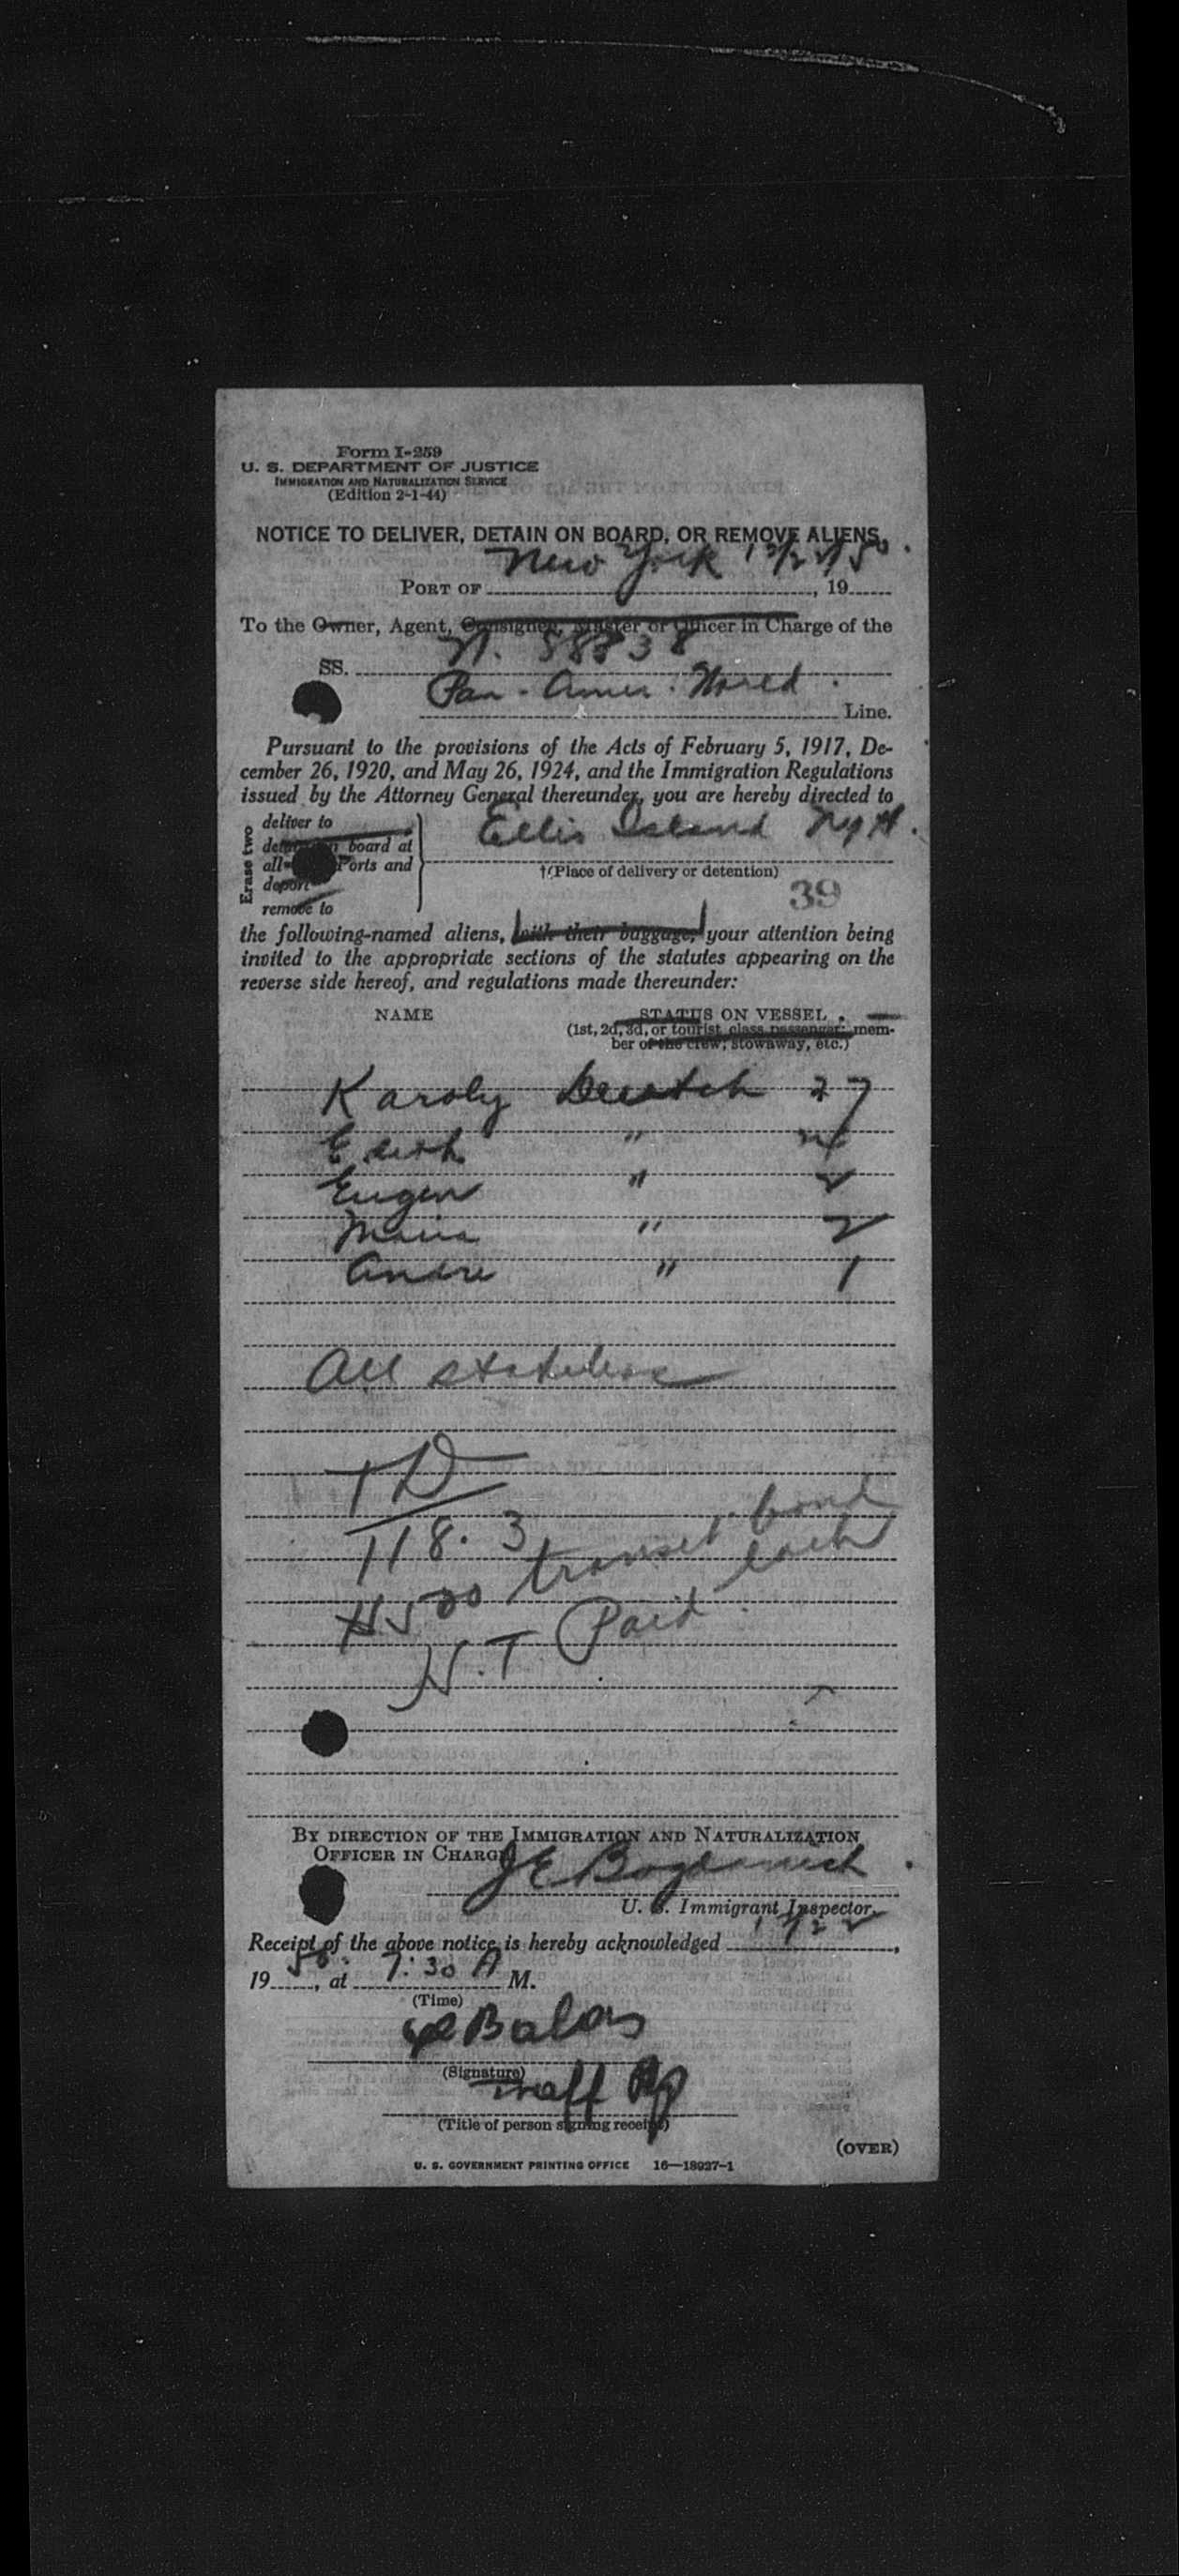 Form I-259
U. S. DEPARTMENT OF JUSTICE
IMMIGRATION AND NATURALIZATION SERVICE
(Edition 2-1-44)
NOTICE TO DELIVER, DETAIN ON BOARD, OR REMOVE ALIENS
New York 12/22/50
PORT OF , 19
To the Owner, Agent, Consignee, Master or Officer in Charge of the
N. 88838
SS.
Pan-Amer. World
Line.
Pursuant to the provisions of the Acts of February 5, 1917, De-
cember 26, 1920, and May 26, 1924, and the Immigration Regulations
issued by the Attorney General thereunder, you are hereby directed to
Erase two
deliver to
board at
all Ports and
deport
remove to
Ellis Island NYH.
†(Place of delivery or detention)
39
the following-named aliens, with their baggage, your attention being
invited to the appropriate sections of the statutes appearing on the
reverse side hereof, and regulations made thereunder:
NAME STATUS ON VESSEL
(1st, 2d, 3d, or tourist class passenger; mem-
ber of the crew; stowaway, etc.)
Karoly 27
Edith "
Eugen " 2
Maria " 2
Andre " 1
All stateless
TD
118.3
$500 transit bond
each
N.T. Paid
BY DIRECTION OF THE IMMIGRATION AND NATURALIZATION
OFFICER IN CHARGE
U. S. Immigrant Inspector.
Receipt of the above notice is hereby acknowledged 12/22,
1950, at 7:30 A M.
(Time)
Balas
(Signature)
Traff Rp
(Title of person signing receipt)
(OVER)
U. S. GOVERNMENT PRINTING OFFICE 16—18927-1